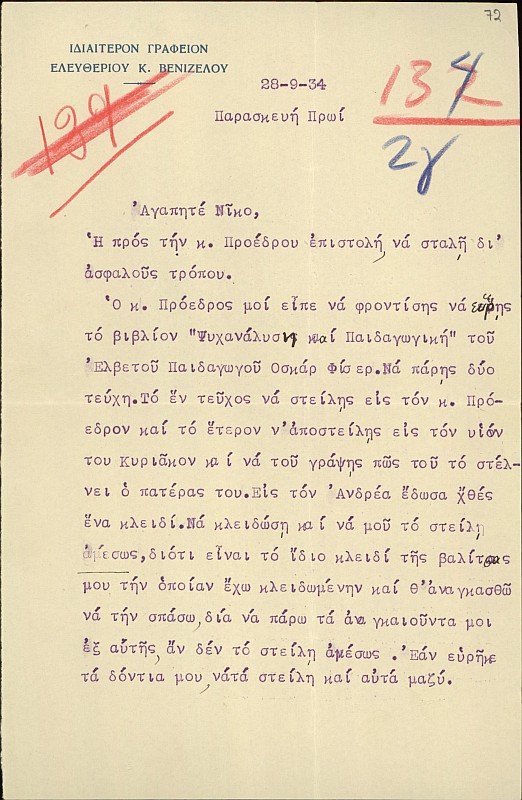 72
ΙΔΙΑΙΤΕΡΟΝ ΓΡΑΦΕΙΟΝ
ΕΛΕΥΘΕΡΙΟΥ Κ. ΒΕΝΙΖΕΛΟΥ
28-9-34
Παρασκευή Πρωί
2γ
Ἀγαπητέ Νῖκο,
Ἡ πρός τήν κ. Προέδρου ἐπιστολή, νά σταλῆ δι'
ἀσφαλοῦς τρόπου.
Ὁ κ. Πρόεδρος μοί εἶπε νά φροντίσης νά εὕρης
τό βιβλίον "Ψυχανάλυσιη καί Παιδαγωγική" τοῦ
Ἐλβετοῦ Παιδαγωγοῦ Οσκάρ Φίστερ.Νά πάρης δύο
τεύχη.Τό ἕν τεῦχος νά στείλης εἰς τόν κ. Πρό-
εδρον καί τό ἕτερον ν'ἀποστείλης εἰς τόν υἱόν
του Κυριᾶκον καί νά τοῦ γράψης πῶς τοῦ τό στέλ-
νει ὁ πατέρας του.Εἰς τόν Ἀνδρέα ἔδωσα χθές
ἕνα κλειδί.Νά κλειδώση καί νά μοῦ τό στείλη
ἀμέσως,διότι εἶναι τό ἴδιο κλειδί τῆς βαλίτσας
μου τήν ὁποίαν ἔχω κλειδωμένην καί θ'ἀναγκασθῶ
νά τήν σπάσω,διά νά πάρω τά ἀναγκαιοῦντα μοι
ἐξ αὐτῆς, ἄν δέν τό στείλη ἀμέσως .Ἐάν εὑρῆκε
τά δόντια μου,νάτά στείλη καί αὐτά μαζύ.